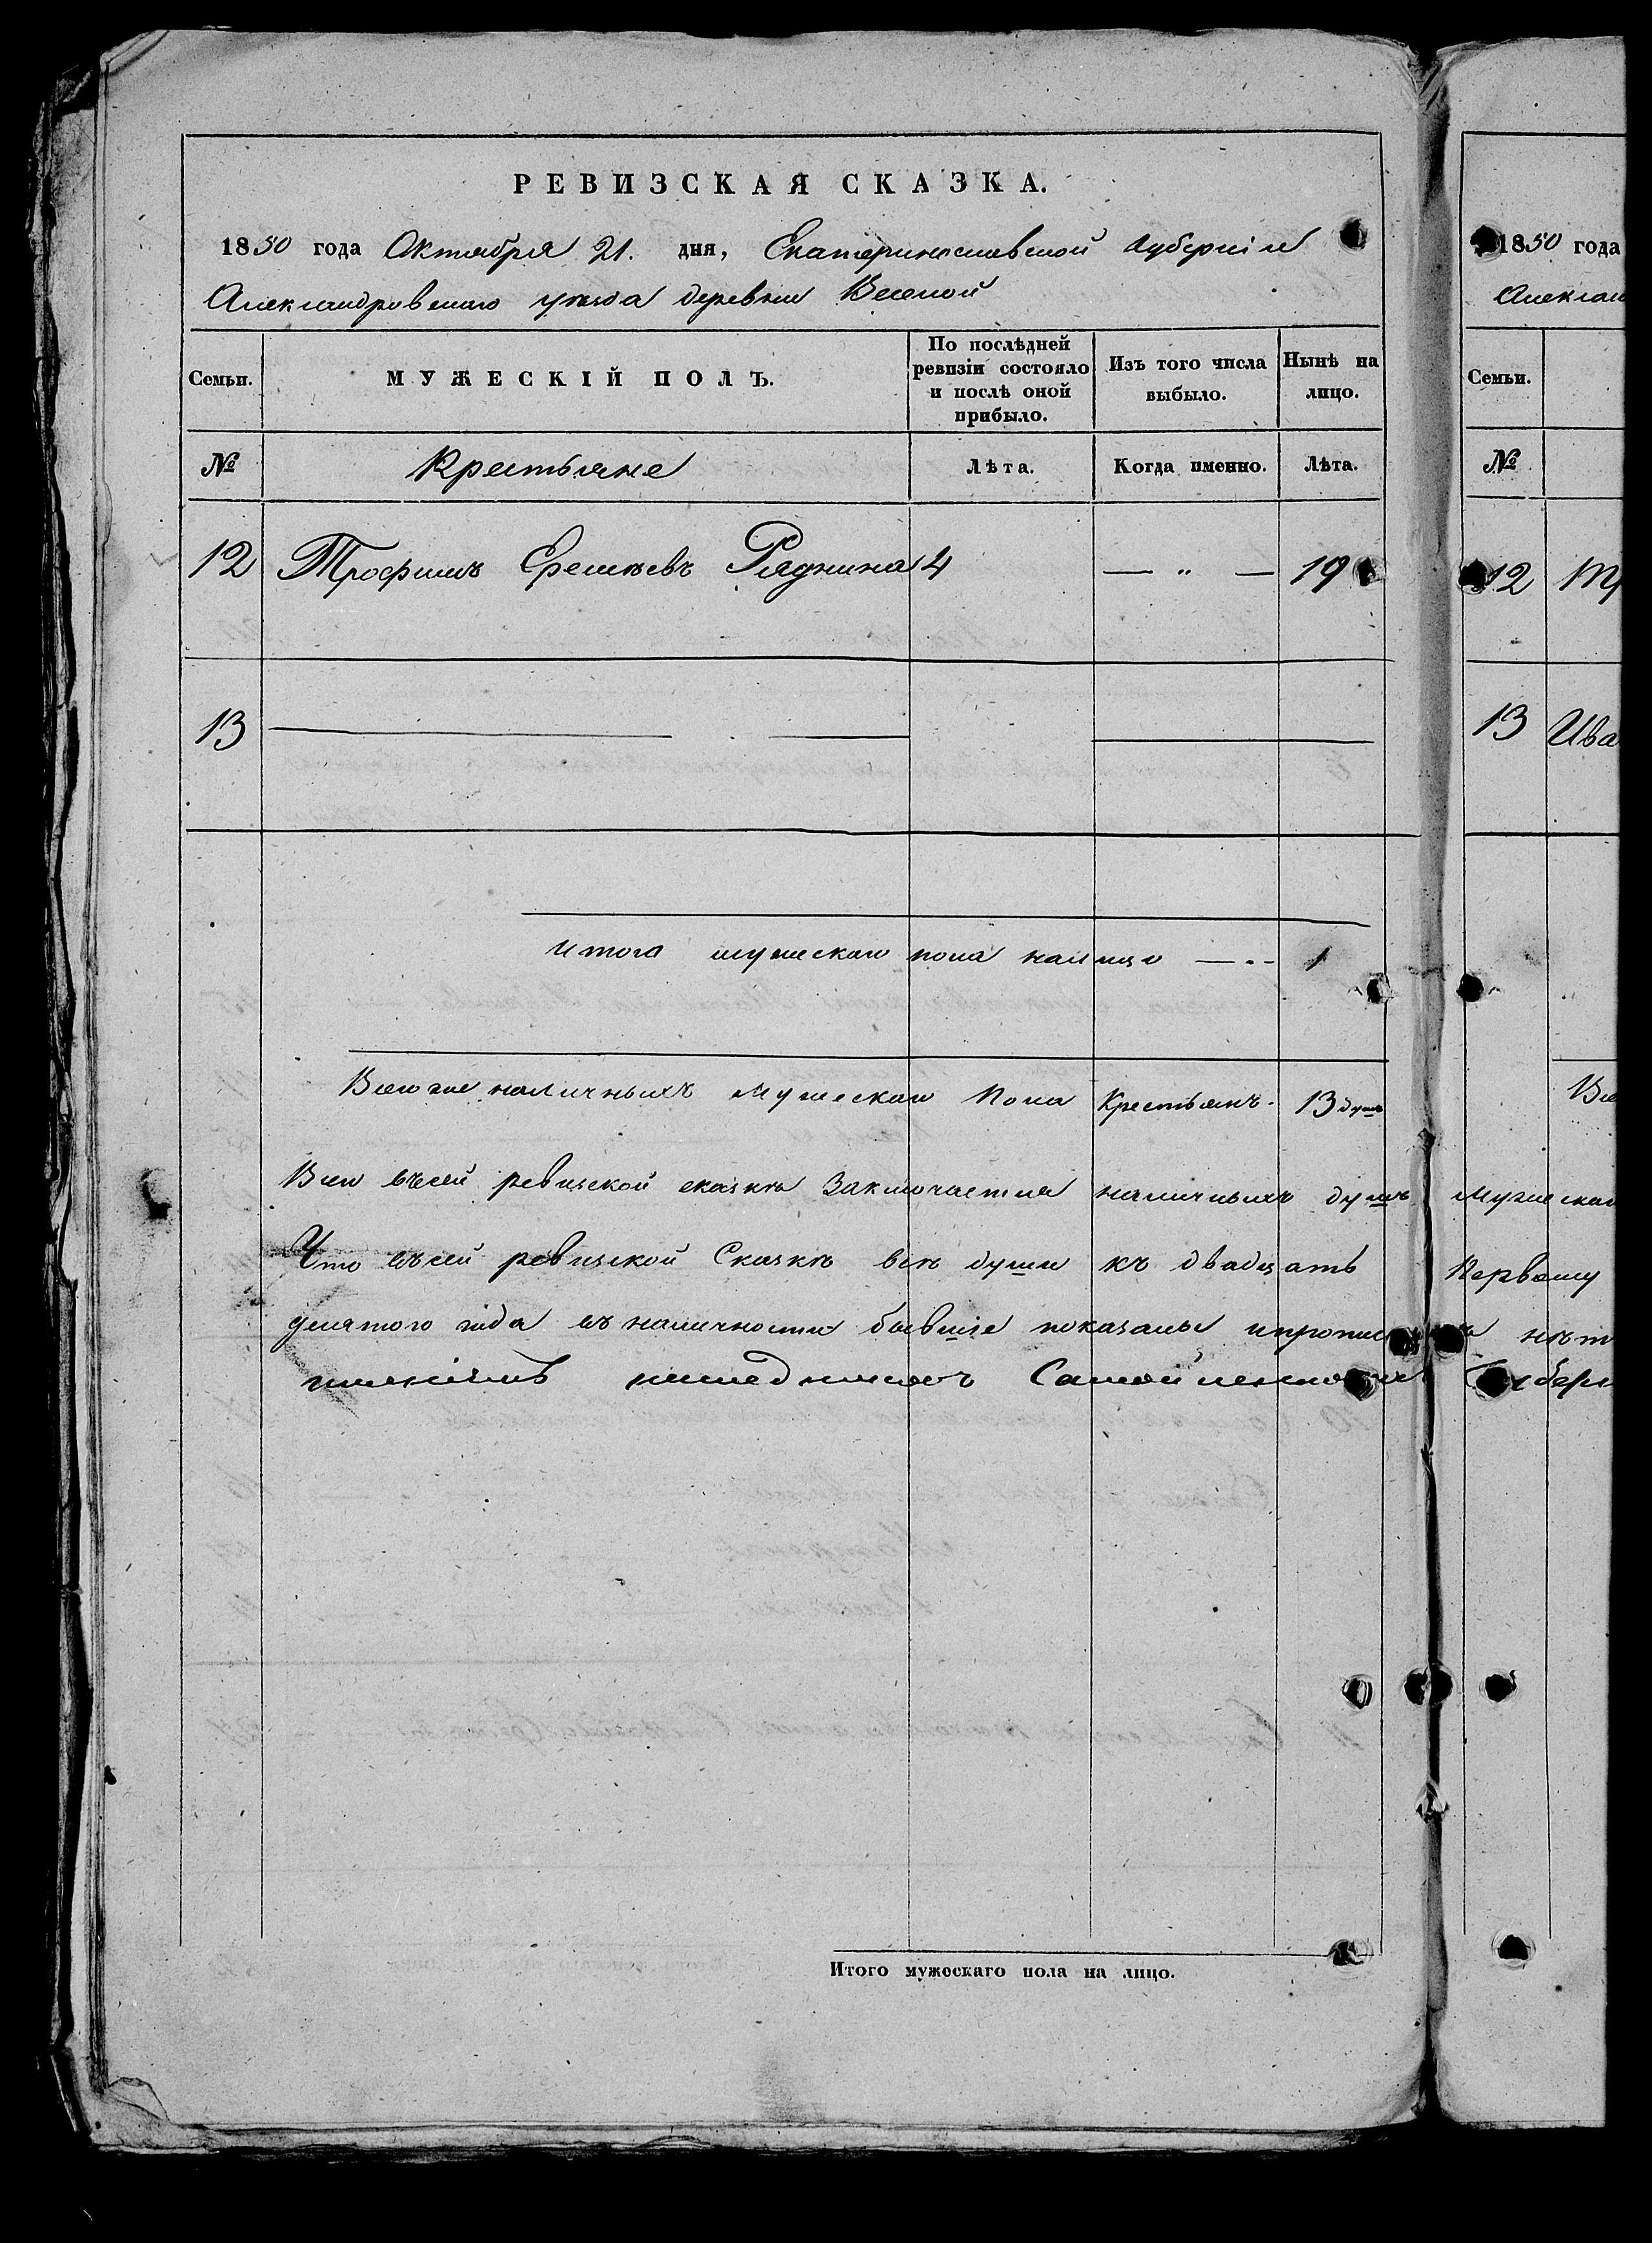 РЕВИЗСКАЯ СКАЗКА.
1850 года Октября 21. дня, Екатеринославской Губерніи
Александровскаго уезда деревни Веселой
Семьи.
МУЖЕСКІЙ ПОЛЪ.
По послѣдней
ревизіи состояло
и послѣ оной
прибыло.
Изъ того числа
выбыло.
Нынѣ на
лицо.
№
Крестьяне
Лѣта.
Когда именно.
Лѣта.
12 Трофимъ 4 — " — 19
13
Итого мужескаго пола налицо — 1
Всего же наличныхъ мужескаго пола Крестьянъ. 13 душъ
Всего въсей ревизской сказкѣ заключается наличныхъ душъ
Что въсей ревизской Сказкѣ всѣ души къ двадцать
девятого года въ наличности бывшіе показаны
Итого мужескаго пола на лицо.
1850 года
Семьи.
№
12
13 Ива
Мужескаго
Первому
нѣт